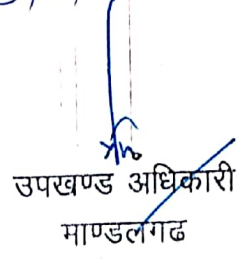 उपखण्ड अधिकारी
माण्डलगढ